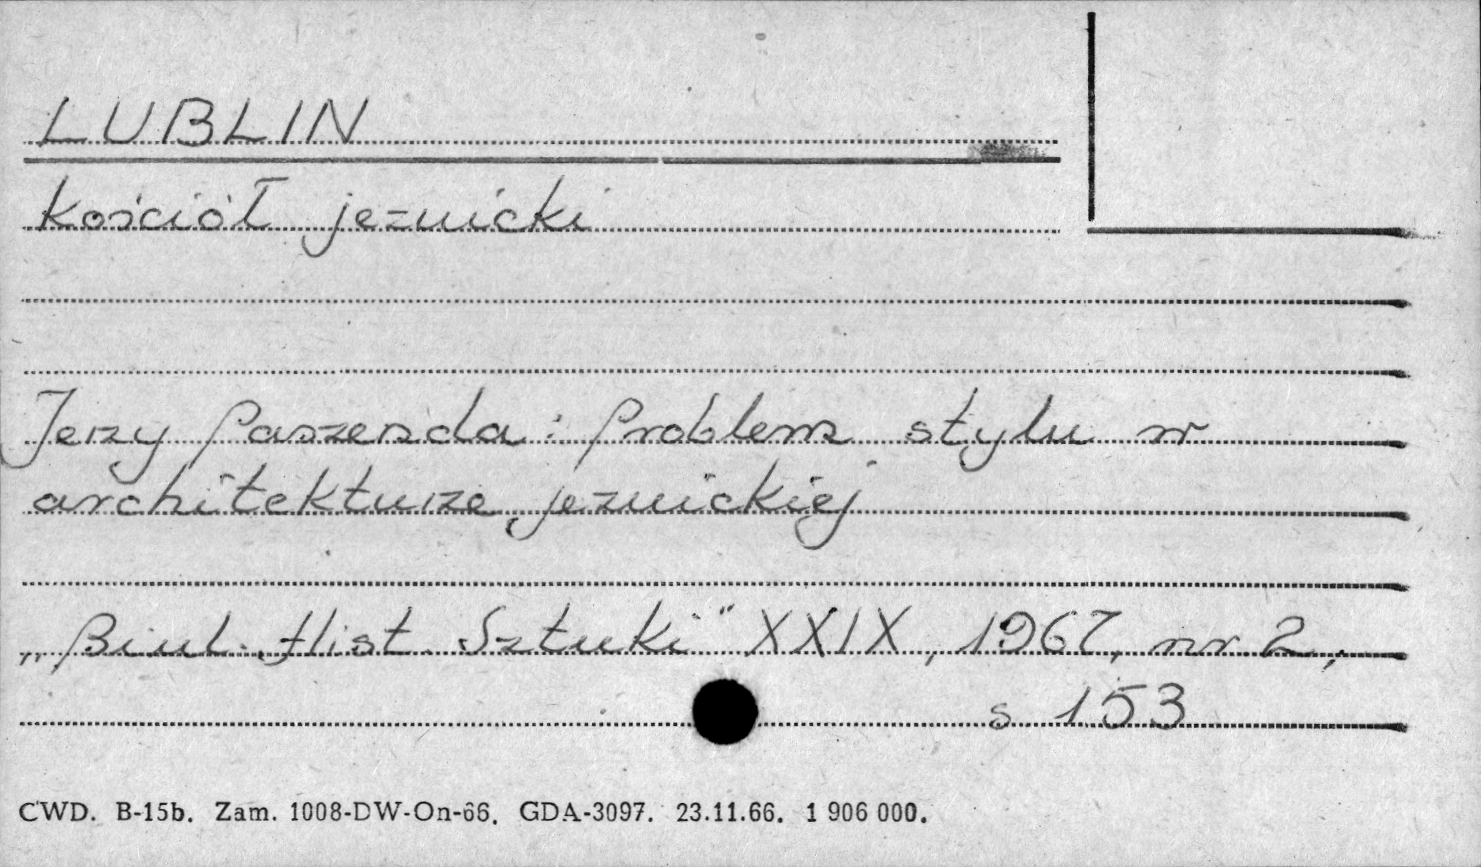 LUBLIN
kościół jezuicki
Jerzy Paszenda: Problem stylu w
architekturze jezuickiej
„Biul. Hist. Sztuki" XXIX, 1967, nr 2,
s 153
CWD. B-15b. Zam. 1008-DW-On-66. GDA-3097. 23.11.66. 1 906 000.